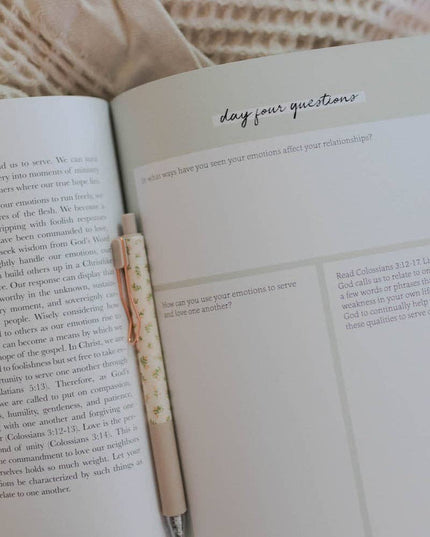 d us to serve. We can
ery into moments of ministry
hers where our true hope lies.
our emotions to run freely, we
ves of the flesh. We become
ripping with foolish responses
have been commanded to love,
seek wisdom from God's Word
ghtly handle our emotions,
s build others up in a Christlike
e. Our response can display that
worthy in the unknown, sustains
ry moment, and sovereignly cares
people. Wisely considering how
d to others as our emotions rise
can become a means by which we
ope of the gospel. In Christ, we are
d to foolishness but set free to take
rtunity to serve one another through
latians 5:13). Therefore, as God's
we are called to put on compassion,
s, humility, gentleness, and patience,
with one another and forgiving one
r Colossians 3:12-13). Love is the
ond of unity (Colossians 3:14). This is
e commandment to love our neighbors
rselves holds so much weight. Let your
ions be characterized by such things as
relate to one another.
day four questions
In what ways have you seen your emotions affect your relationships?
How can you use your emotions to serve
and love one another?
Read Colossians 3:12-17.
God calls us to relate to
a few words or phrases
weakness in your own
God to continually help
these qualities to serve